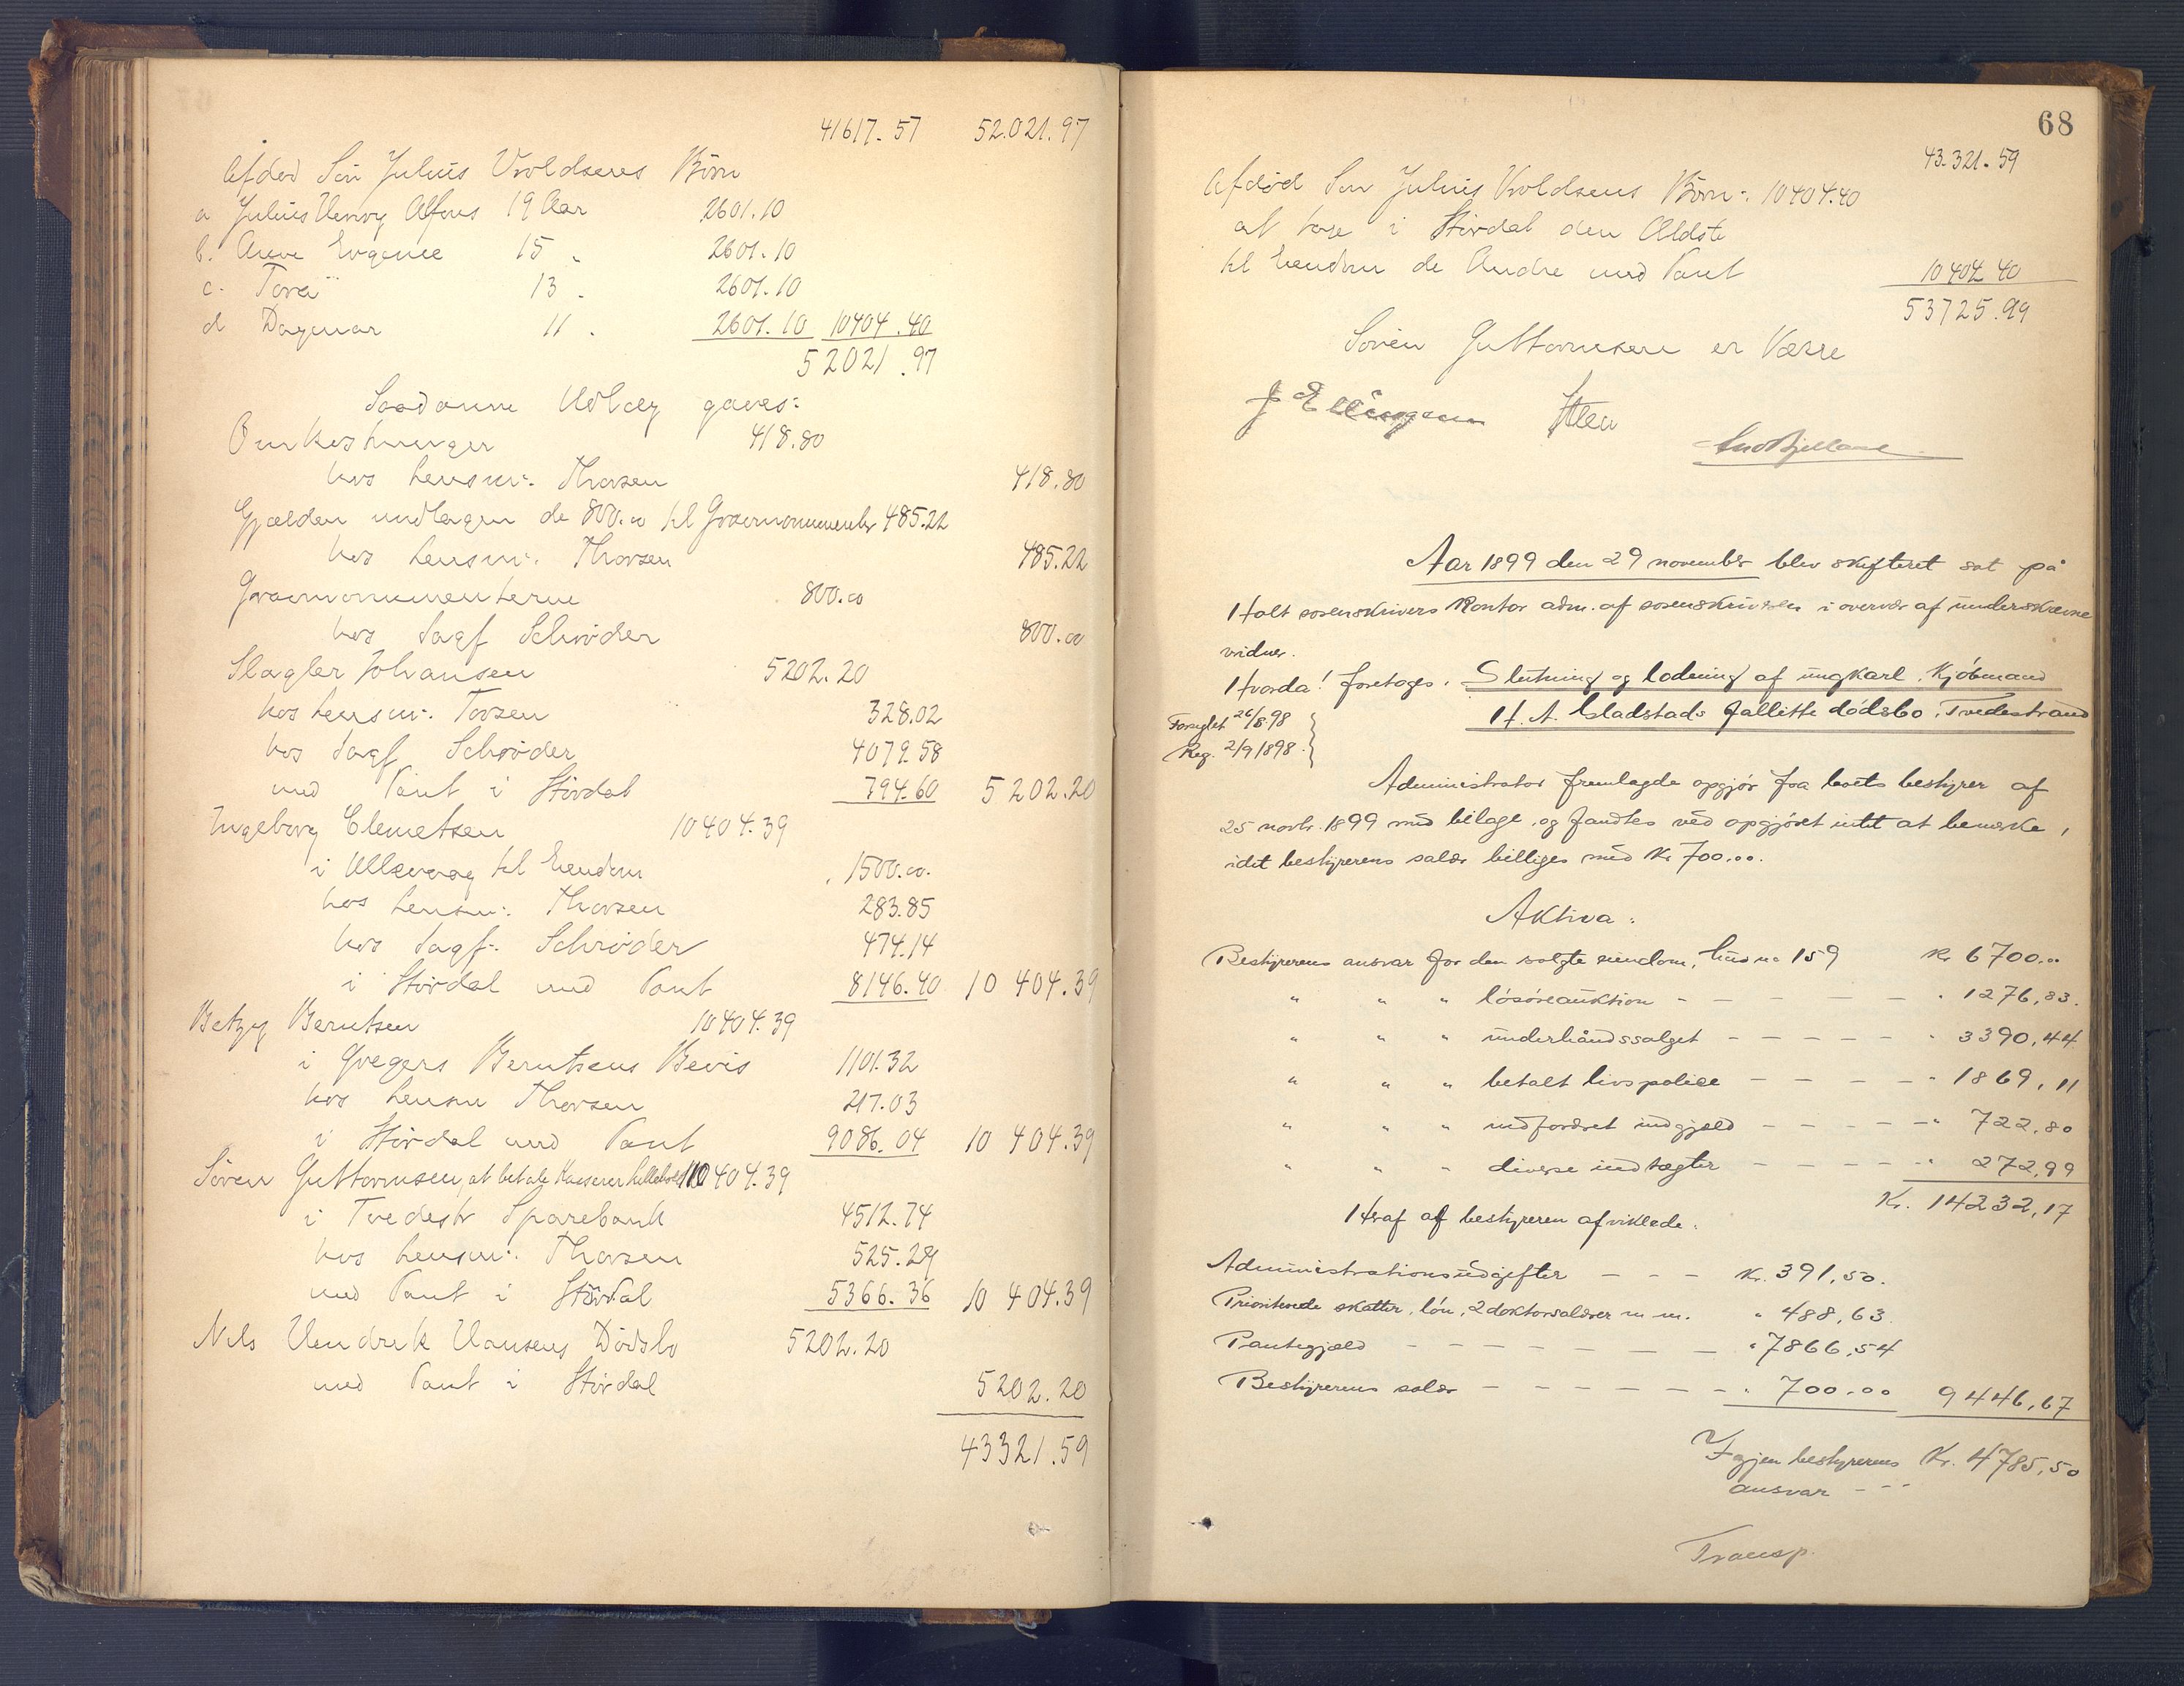 41617.57 52.021.97
Afdød Søn Julius Uvoldsens Børn
a Julius Henry Alfons 19 Aar 2601.10
b. Anne Eugenie 15 " 2601.10
c. Tora 13 " 2601.10
d Dagmar 11 " 2601.10 10404.40
52021.97
Saadanne Udlæg gaves:
Omkostninger 418.80
hos Lensm: Thorsen 418.80
Gjælden undtagen de 800.00 til Gravmonumenter 485.22
hos Lensm: Thorsen 485.22
Gravmonumenterne 800.00
hos Sagf Schrøder 800.00
Slagter Johansen 5202.20
hos Lensm: Torsen 328.02
hos Sagf Schrøder 4079.58
med Pant i Stirdal 794.60 5202.20
Ingeborg Clemetsen 10404.39
i Ullevaag til Eiendom 1500.00
hos Lensm: Thorsen 283.85
hos Sagf: Schrøder 474.14
i Stirdal med Pant 8146.40 10404.39
Betzy Berntsen 10404.39
i Gregers Berntsens Bevis 1101.32
hos Lensm Thorsen 217.03
i Stirdal med Pant 9086.04 10404.39
Søren Guttormsen, at betale Kasserer 10404.39
i Tvedestr Sparebank 4512.74
hos Lensm: Thorsen 525.29
med Pant i Stirdal 5366.36 10404.39
Nils Hendrik Hansens Dødsbo 5202.20
med Pant i Stirdal 5202.20
43321.59
68
43.321.59
Afdød Søn Julius Uvoldsens Børn: 10404.40
at have i Stirdal den Ældste
til Eiendom de Andre med Pant 10404.40
53725.99
Søren Guttormsen er Værge
J Ellingsen Sten
Aar 1899 den 29 november blev skifteret sat på
Holt sorenskrivers Kontor adm. af sorenskriveren i overvær af underskrevne
vidner.
Hvorda! foretoges: Slutning og lodning af ungkarl, Kjøbmand
H. A. Gladstads fallitte dødsbo, Tvedestrand
Forseglet 26/8 98
Reg. 2/9 1898.
Administrator fremlagde opgjør fra boets bestyrer af
25 novbr. 1899 med bilage, og fandtes ved opgjøret intet at bemerke,
idet bestyrerens salær billiges med Kr 700.00.
Aktiva:
Bestyrerens ansvar for den solgte eiendom, hus no 159 Kr 6700.00
" " " løsøreauktion - - - - - " 1276,83.
" " " underhåndssalget - - - - - " 3390,44
" " " betalt livspolice - - - - " 1869,11
" " " indfordret indgjæld - - - - - " 722,80
" " " diverse indtægter - - - - - " 272,99
Kr. 14232,17
Heraf af bestyreren afviklede:
Administrationsudgifter - - - Kr. 391,50.
Prioriterede skatter, løn, 2 doktorsalærer m m. " 488,63.
Pantegjæld - - - - - - - " 7866,54
Bestyrerens salær - - - - - - - " 700.00 9446,67
Igjen bestyrerens Kr. 4785,50
ansvar - - -
Transp.